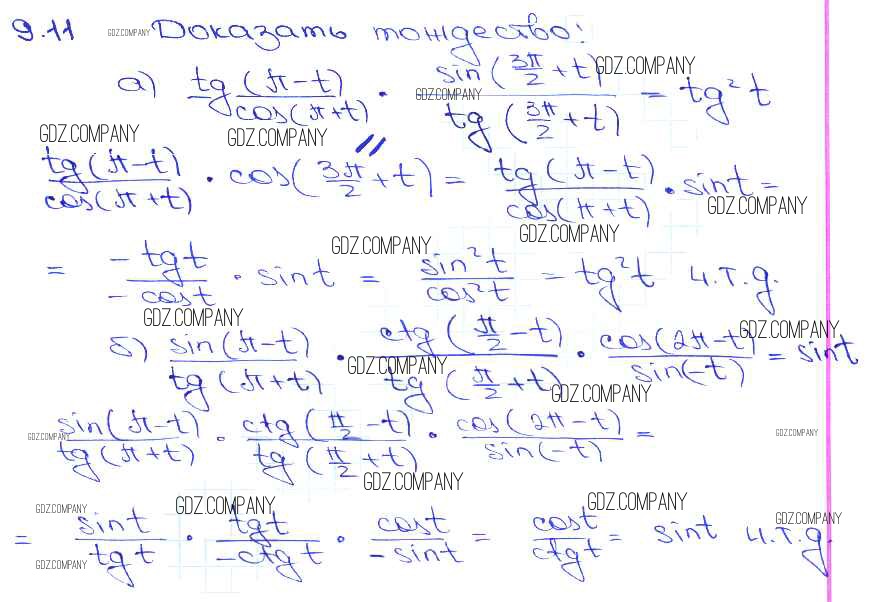 9.11 GDZ.COMPANY Доказать тождество:
а) tg(π-t)/cos(π+t) · sin(3π/2+t)/tg(3π/2+t) = tg²t
GDZ.COMPANY GDZ.COMPANY
GDZ.COMPANY GDZ.COMPANY
tg(π-t)/cos(π+t) · cos(3π/2+t) = tg(π-t)/cos(π+t) · sint =
GDZ.COMPANY
GDZ.COMPANY GDZ.COMPANY
= -tgt/-cost · sint = sin²t/cos²t = tg²t ч.т.д.
GDZ.COMPANY GDZ.COMPANY
б) sin(π-t)/tg(π+t) · ctg(π/2-t)/tg(π/2+t) · cos(2π-t)/sin(-t) = sint
GDZ.COMPANY GDZ.COMPANY
sin(π-t)/tg(π+t) · ctg(π/2-t)/tg(π/2+t) · cos(2π-t)/sin(-t) =
GDZ.COMPANY GDZ.COMPANY
GDZ.COMPANY
GDZ.COMPANY GDZ.COMPANY GDZ.COMPANY GDZ.COMPANY
= sint/tgt · tgt/-ctgt · cost/-sint = cost/ctgt = sint ч.т.д.
GDZ.COMPANY